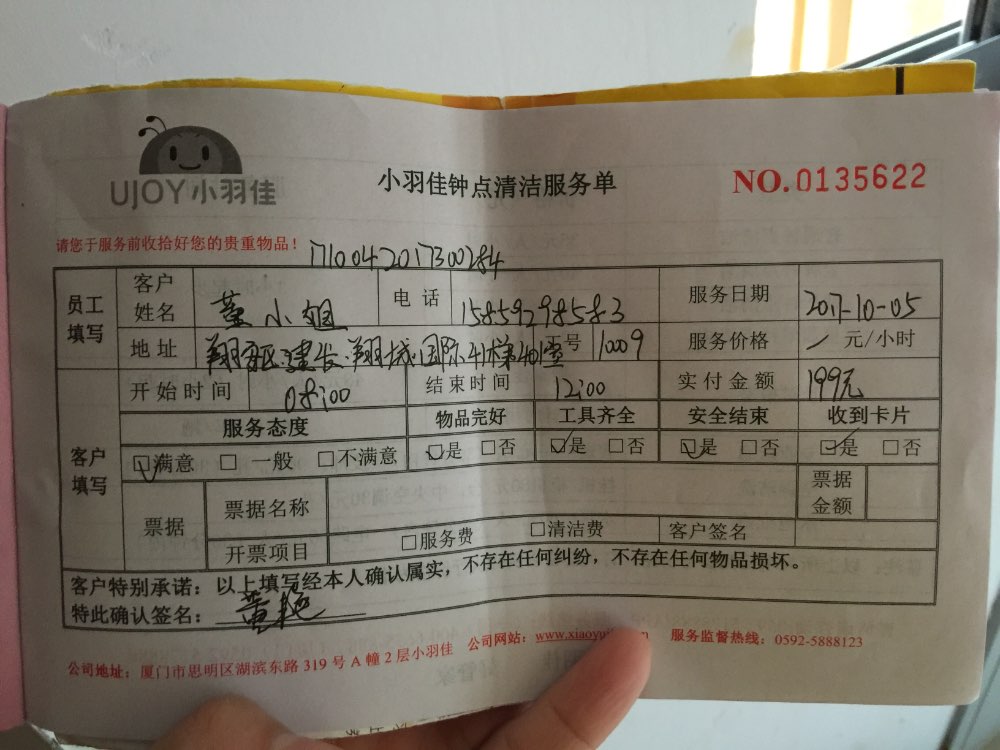 UJOY小羽佳
小羽佳钟点清洁服务单
NO.0135622
请您于服务前收拾好您的贵重物品！
1710042017300284
员工填写 客户姓名 董小姐 电话 15859298583 服务日期 2017-10-05
地址 翔城国际41梯401室 工号 11009 服务价格 / 元/小时
客户填写 开始时间 08:00 结束时间 12:00 实付金额 199元
服务态度 物品完好 工具齐全 安全结束 收到卡片
☑满意 □一般 □不满意 ☑是 □否 ☑是 □否 ☑是 □否 ☑是 □否
票据 票据名称 票据金额
开票项目 □服务费 □清洁费 客户签名
客户特别承诺：以上填写经本人确认属实，不存在任何纠纷，不存在任何物品损坏。
特此确认签名：黄艳
公司地址：厦门市思明区湖滨东路 319 号 A 幢 2 层小羽佳 公司网站： 服务监督热线：0592-5888123